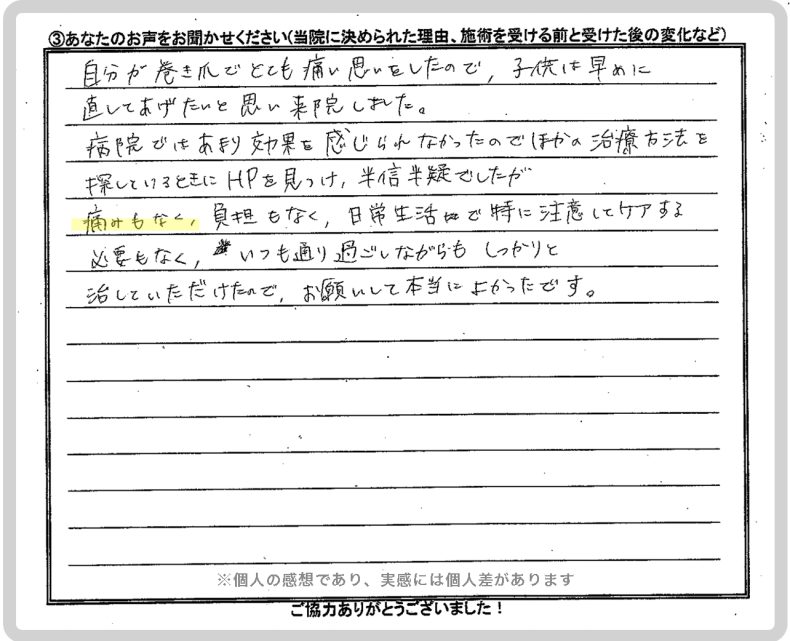 ③あなたのお声をお聞かせください(当院に決められた理由、施術を受ける前と受けた後の変化など)
自分が巻き爪でとても痛い思いをしたので、子供は早めに
直してあげたいと思い来院しました。
病院ではあまり効果を感じられなかったのでほかの治療方法を
探しているときにHPを見つけ、半信半疑でしたが
痛みもなく、負担もなく、日常生活で特に注意してケアする
必要もなく、いつも通り過ごしながらもしっかりと
治していただけたので、お願いして本当によかったです。
※個人の感想であり、実感には個人差があります
ご協力ありがとうございました！